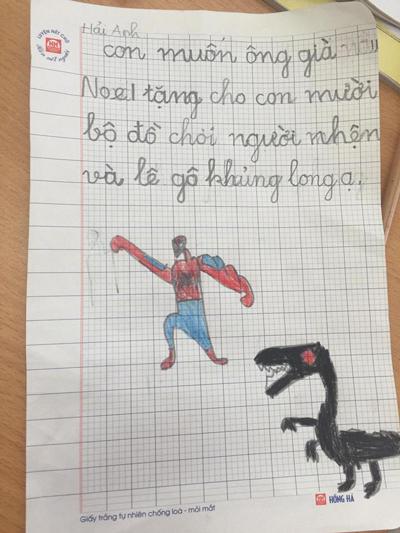 Hải Anh
con muốn ông già
Noel tặng cho con mười
bộ đồ chơi người nhện
và lê gô khủng long ạ.
HỒNG HÀ
Giấy trắng tự nhiên chống loá - mỏi mắt